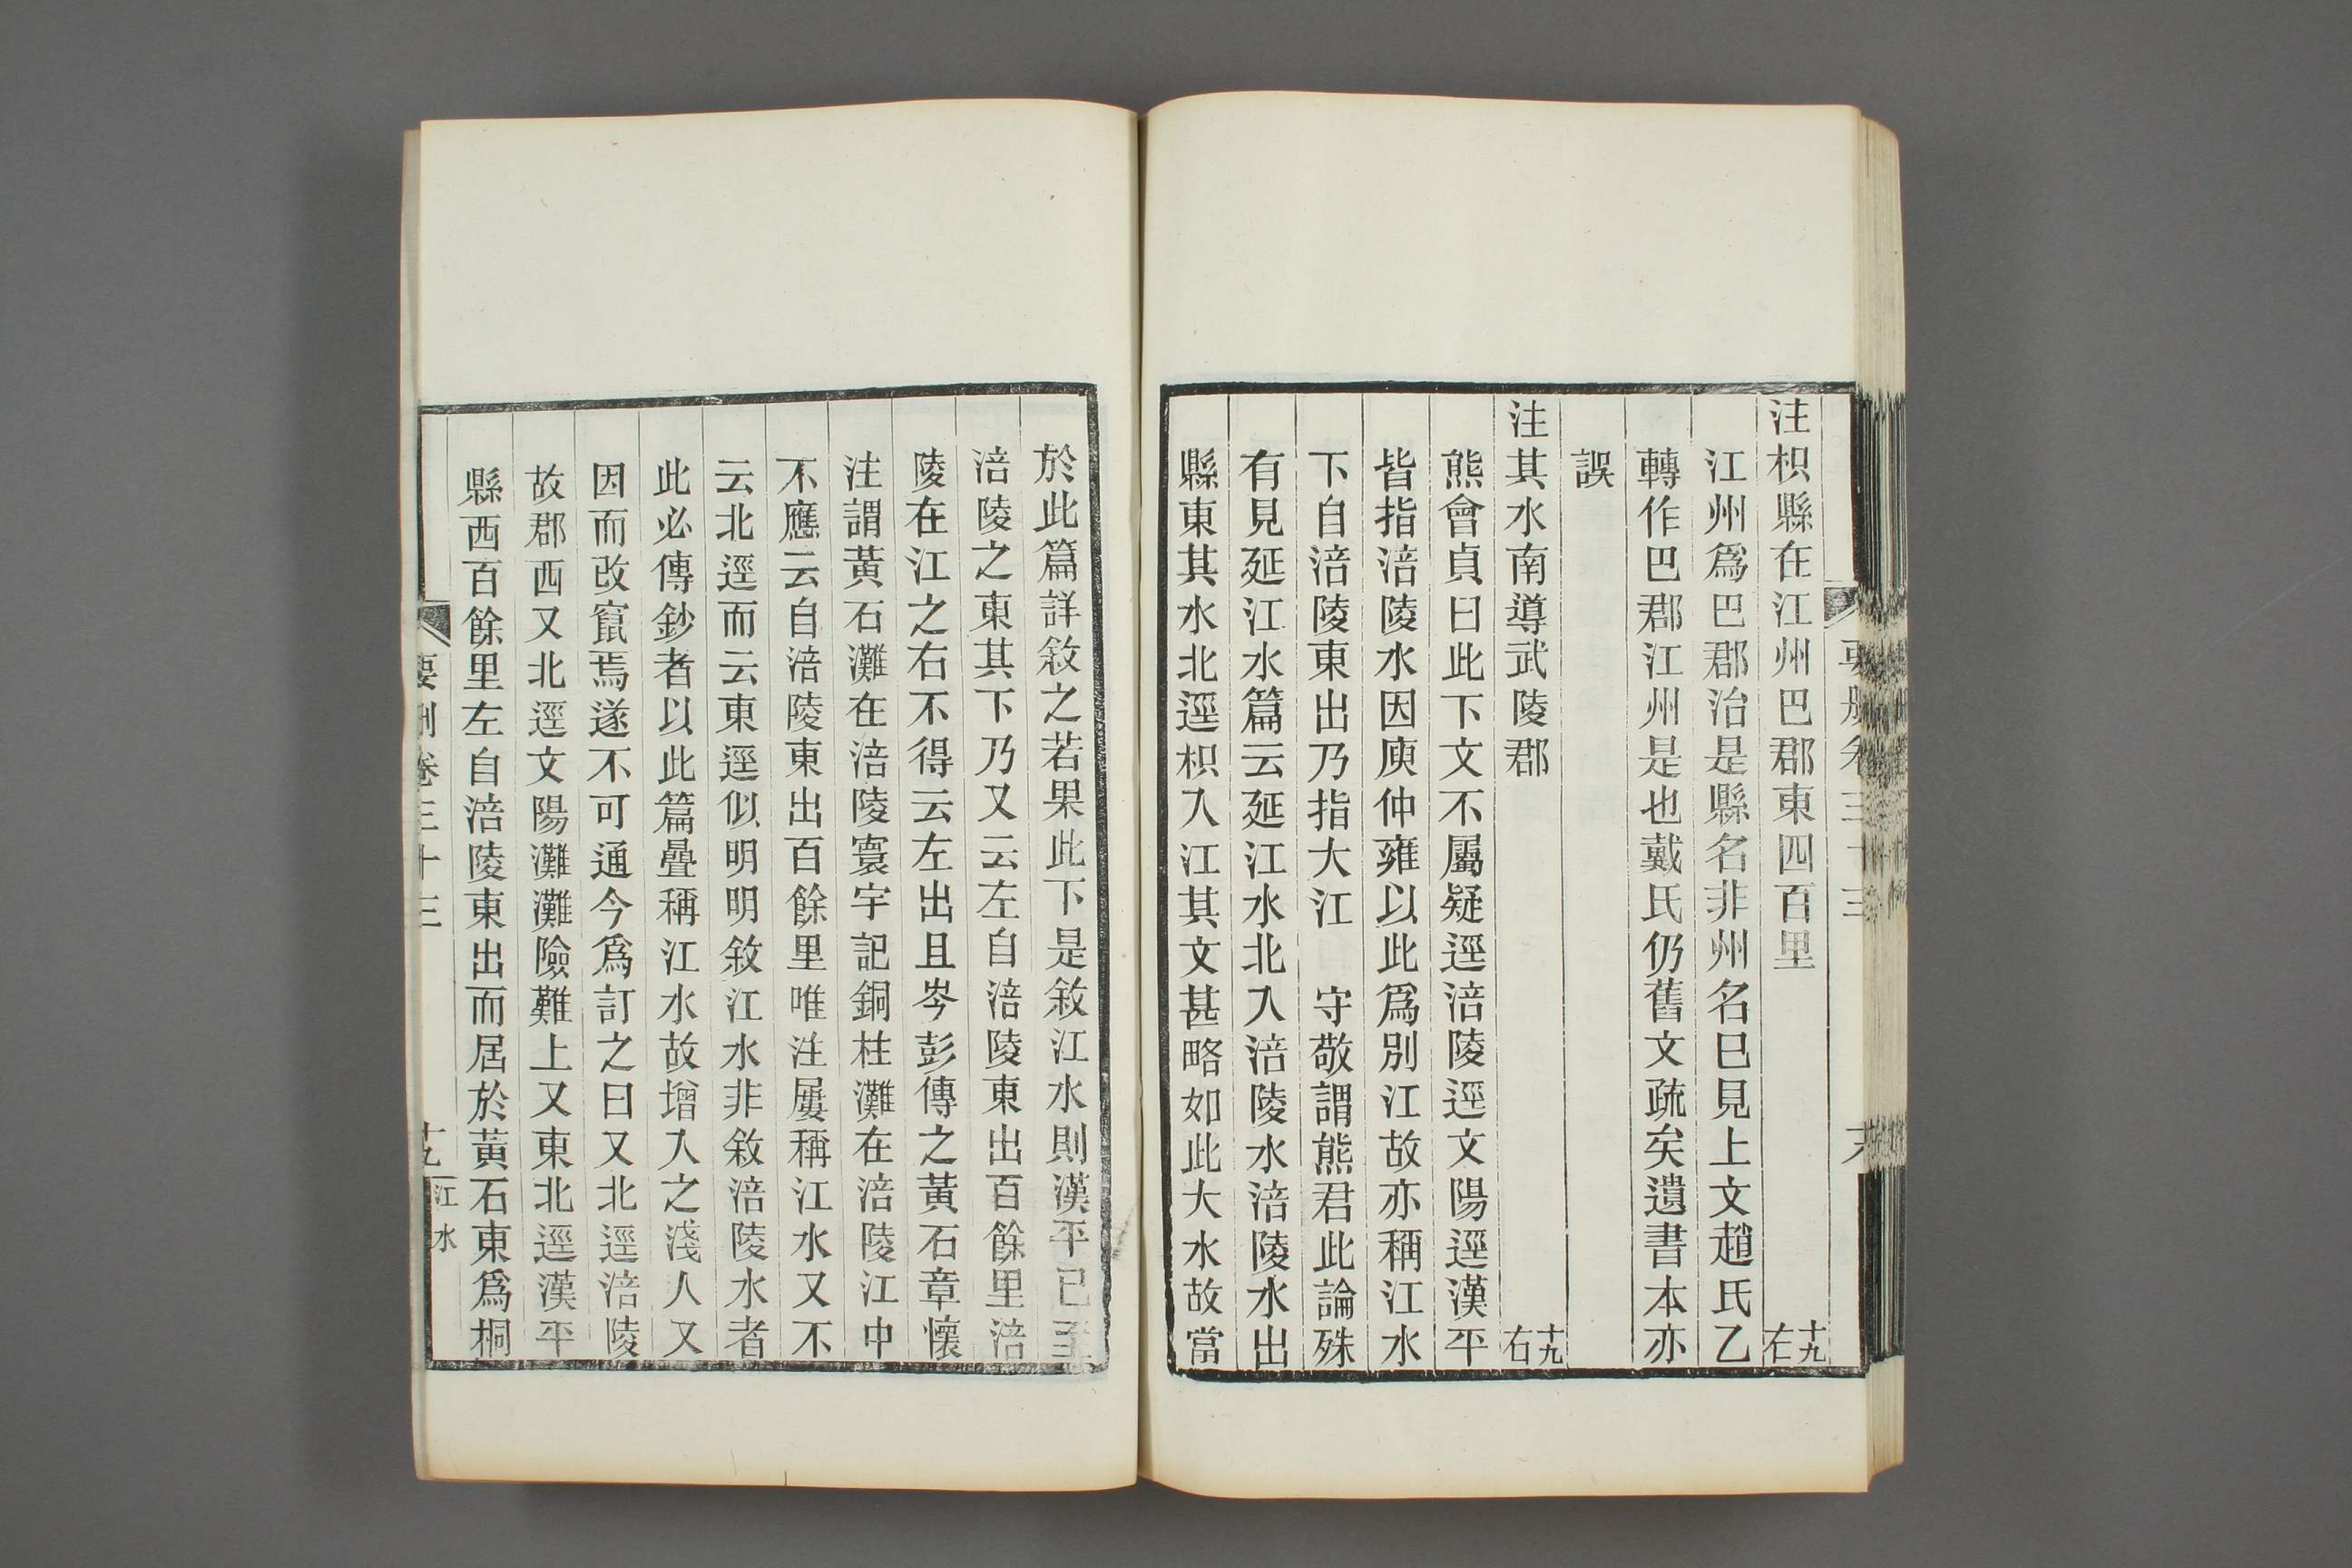 注枳縣在江州巴郡東四百里 十九右
江州爲巴郡治是縣名非州名巳見上文趙氏乙
轉作巴郡江州是也戴氏仍舊文疏矣遺書本亦
誤
注其水南導武陵郡 十九右
熊會貞曰此下文不屬疑逕涪陵逕文陽逕漢平
皆指涪陵水因庾仲雍以此爲別江故亦稱江水
下自涪陵東出乃指大江 守敬謂熊君此論殊
有見延江水篇云延江水北入涪陵水涪陵水出
縣東其水北逕枳入江其文甚略如此大水故當
於此篇詳敘之若果此下是敘江水則漢平已至
涪陵之東其下乃又云左自涪陵東出百餘里涪
陵在江之右不得云左出且岑彭傳之黃石章懷
注謂黃石灘在涪陵寰宇記銅柱灘在涪陵江中
不應云自涪陵東出百餘里唯注屢稱江水又不
云北逕而云東逕似明明敘江水非敘涪陵水者
此必傳鈔者以此篇疊稱江水故增入之淺人又
因而改竄焉遂不可通今爲訂之曰又北逕涪陵
故郡西又北逕文陽灘灘險難上又東北逕漢平
縣西百餘里左自涪陵東出而居於黃石東爲桐
要刪卷三十三 十九 江水